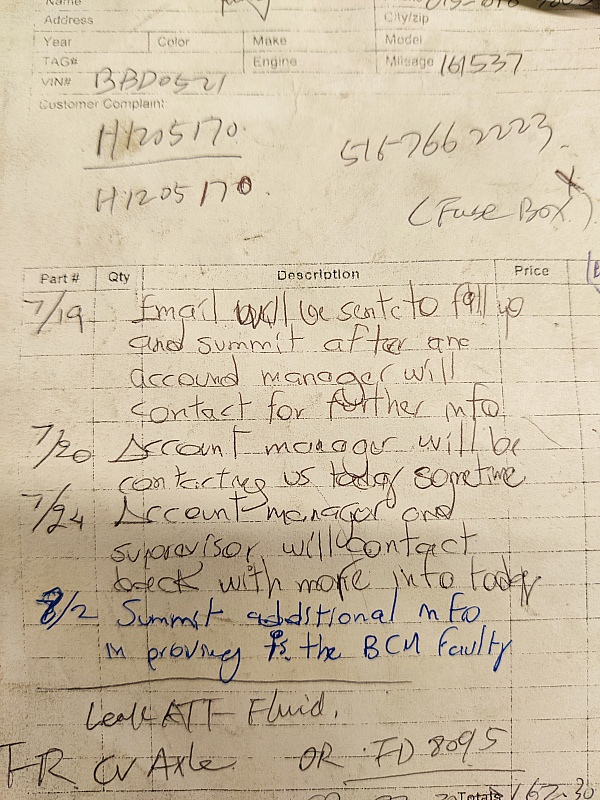 Name
Address City/zip
Year Color Make Model
TAG# Engine Mileage 161537
VIN# BBD0521
Customer Complaint:
H1205170
516-766 2223
H1205170
(Fuse Box)
Part # Qty Description Price
7/19 Email will be sente to fill
and summit after an
accound manager will
contact for further info
7/20 Account manager will be
contacting us today sometime
7/24 Account manager and
supervisor will contact
back with more info today
8/2 Summit additional info
in proving is the BCM Faulty
Leak ATT Fluid.
FR CV Axle OR FD 8095
Totals 162.30